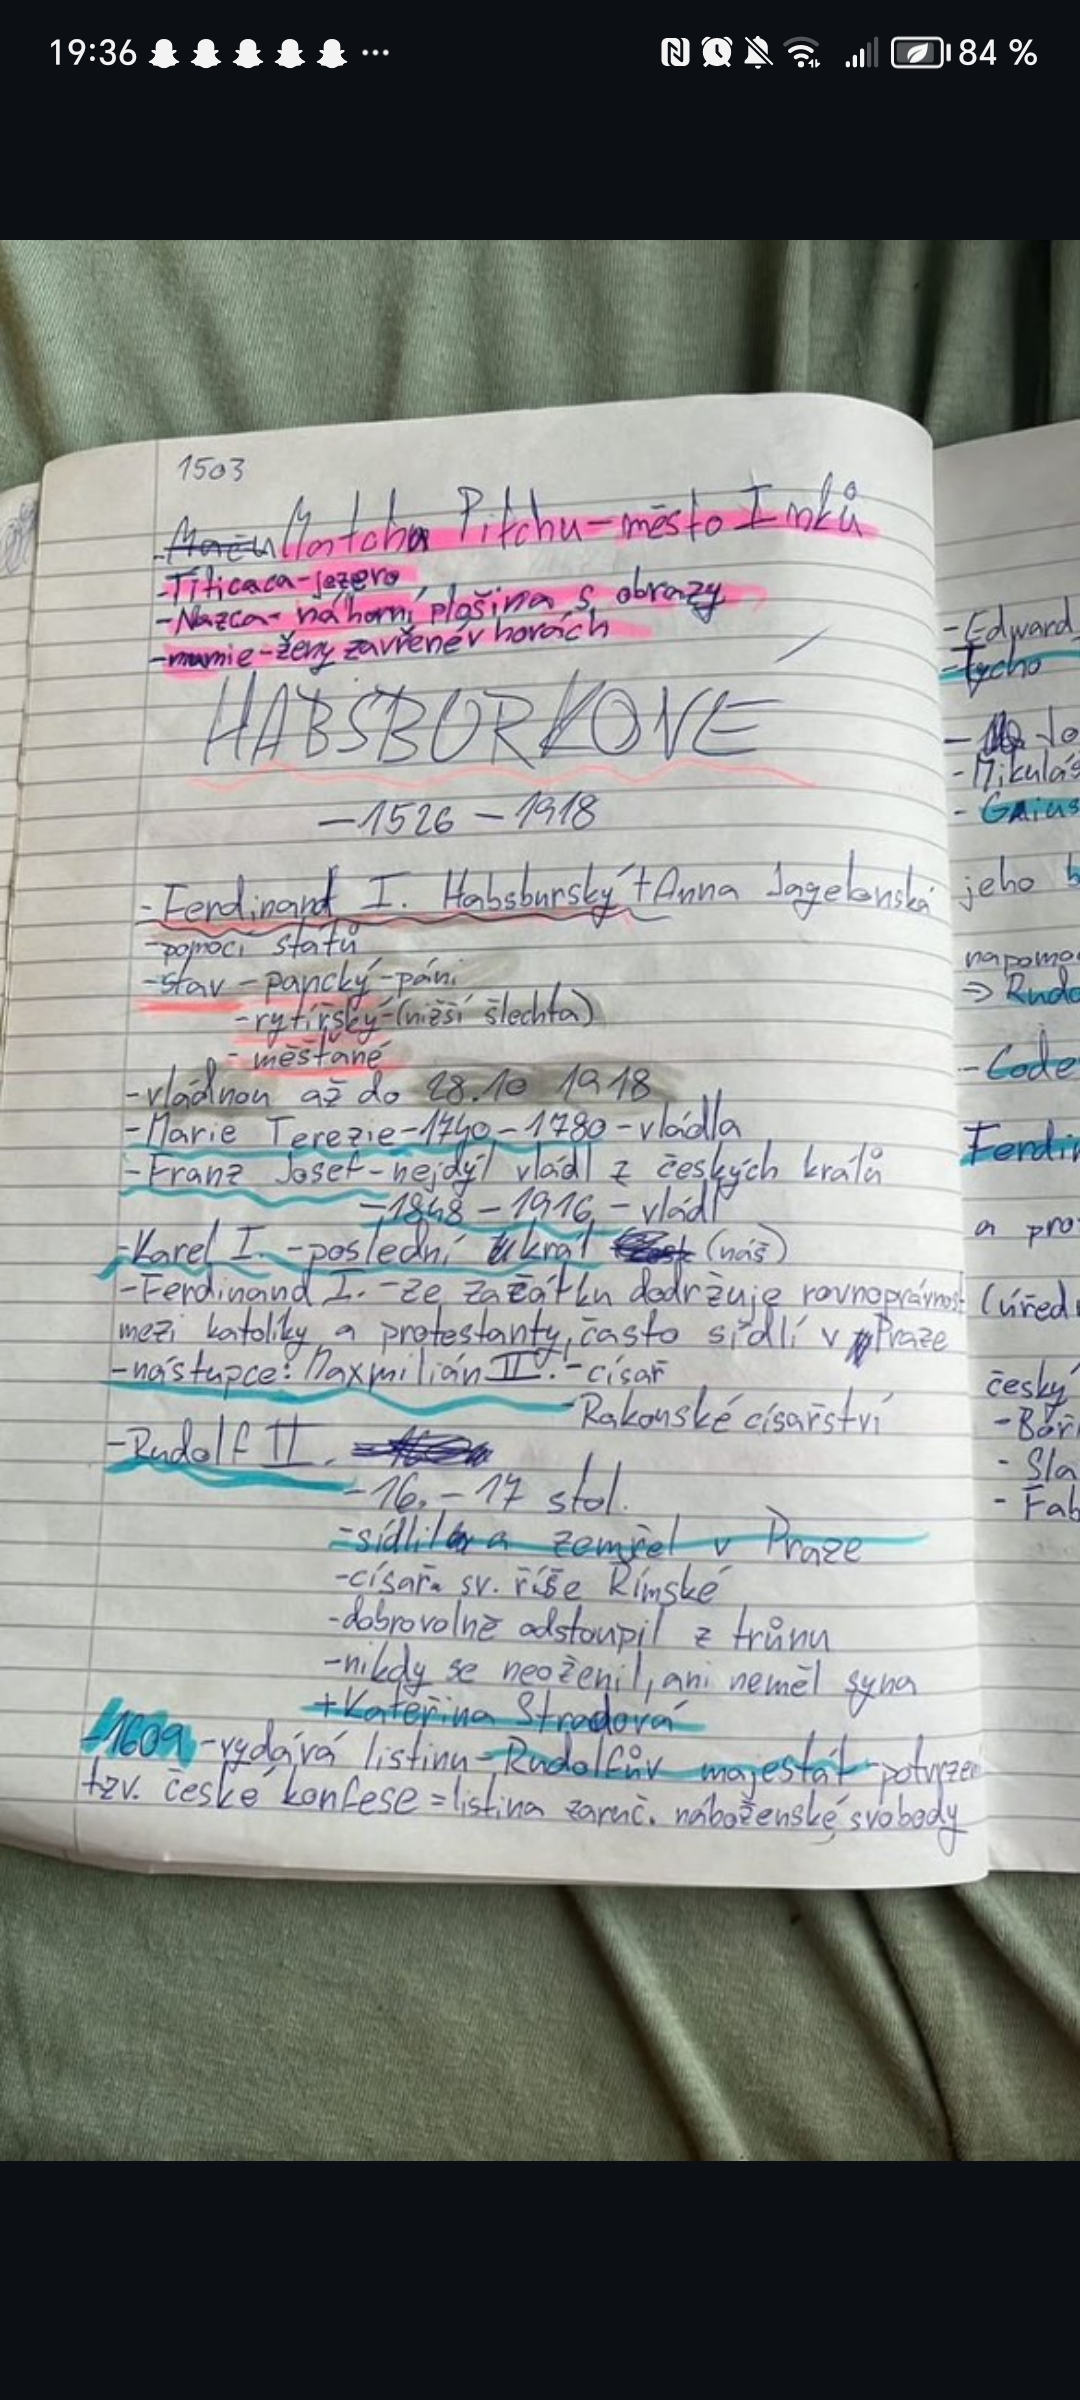 19:36 ... 84 %
1503
Matchu Pitchu-město Inků
-Titicaca-jezero
-Nazca-náhorní plošina s obrazy
-mumie-ženy zavřené v horách
HABSBURKOVÉ
-1526-1918
-Ferdinand I. Habsburský + Anna Jagelonská
-pomocí států
-stav-pancký-páni
-rytířský-(nižší šlechta)
-měšťané
-vládnou až do 28.10 1918
-Marie Terezie-1740-1780-vládla
-Franz Josef-nejdýl vládl z českých králů
-1848-1916-vládl
-Karel I.-poslední král (náš)
-Ferdinand I.-ze začátku dodržuje rovnoprávnost
mezi katolíky a protestanty, často sídlí v Praze
-nástupce: Maxmilián II.-císař
Rakouské císařství
-Rudolf II.
-16.-17 stol.
-sídlil a zemřel v Praze
-císař sv. říše Římské
-dobrovolně odstoupil z trůnu
-nikdy se neoženil, ani neměl syna
+Kateřina Stradová
-1609-vydává listinu-Rudolfův majestát-potvrzen
tzv. české konfese=listina zaruč. náboženské svobody
-Edward
-Tycho
- do
-Mikuláš
-Gaius
jeho b
napomo
=> Rudo
-Code
Ferdin
a pro
(úředn
český
-Boři
-Sla
-Fab